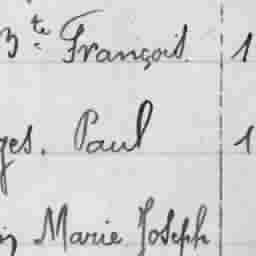 Bte François 1
ges. Paul 1
Marie Joseph